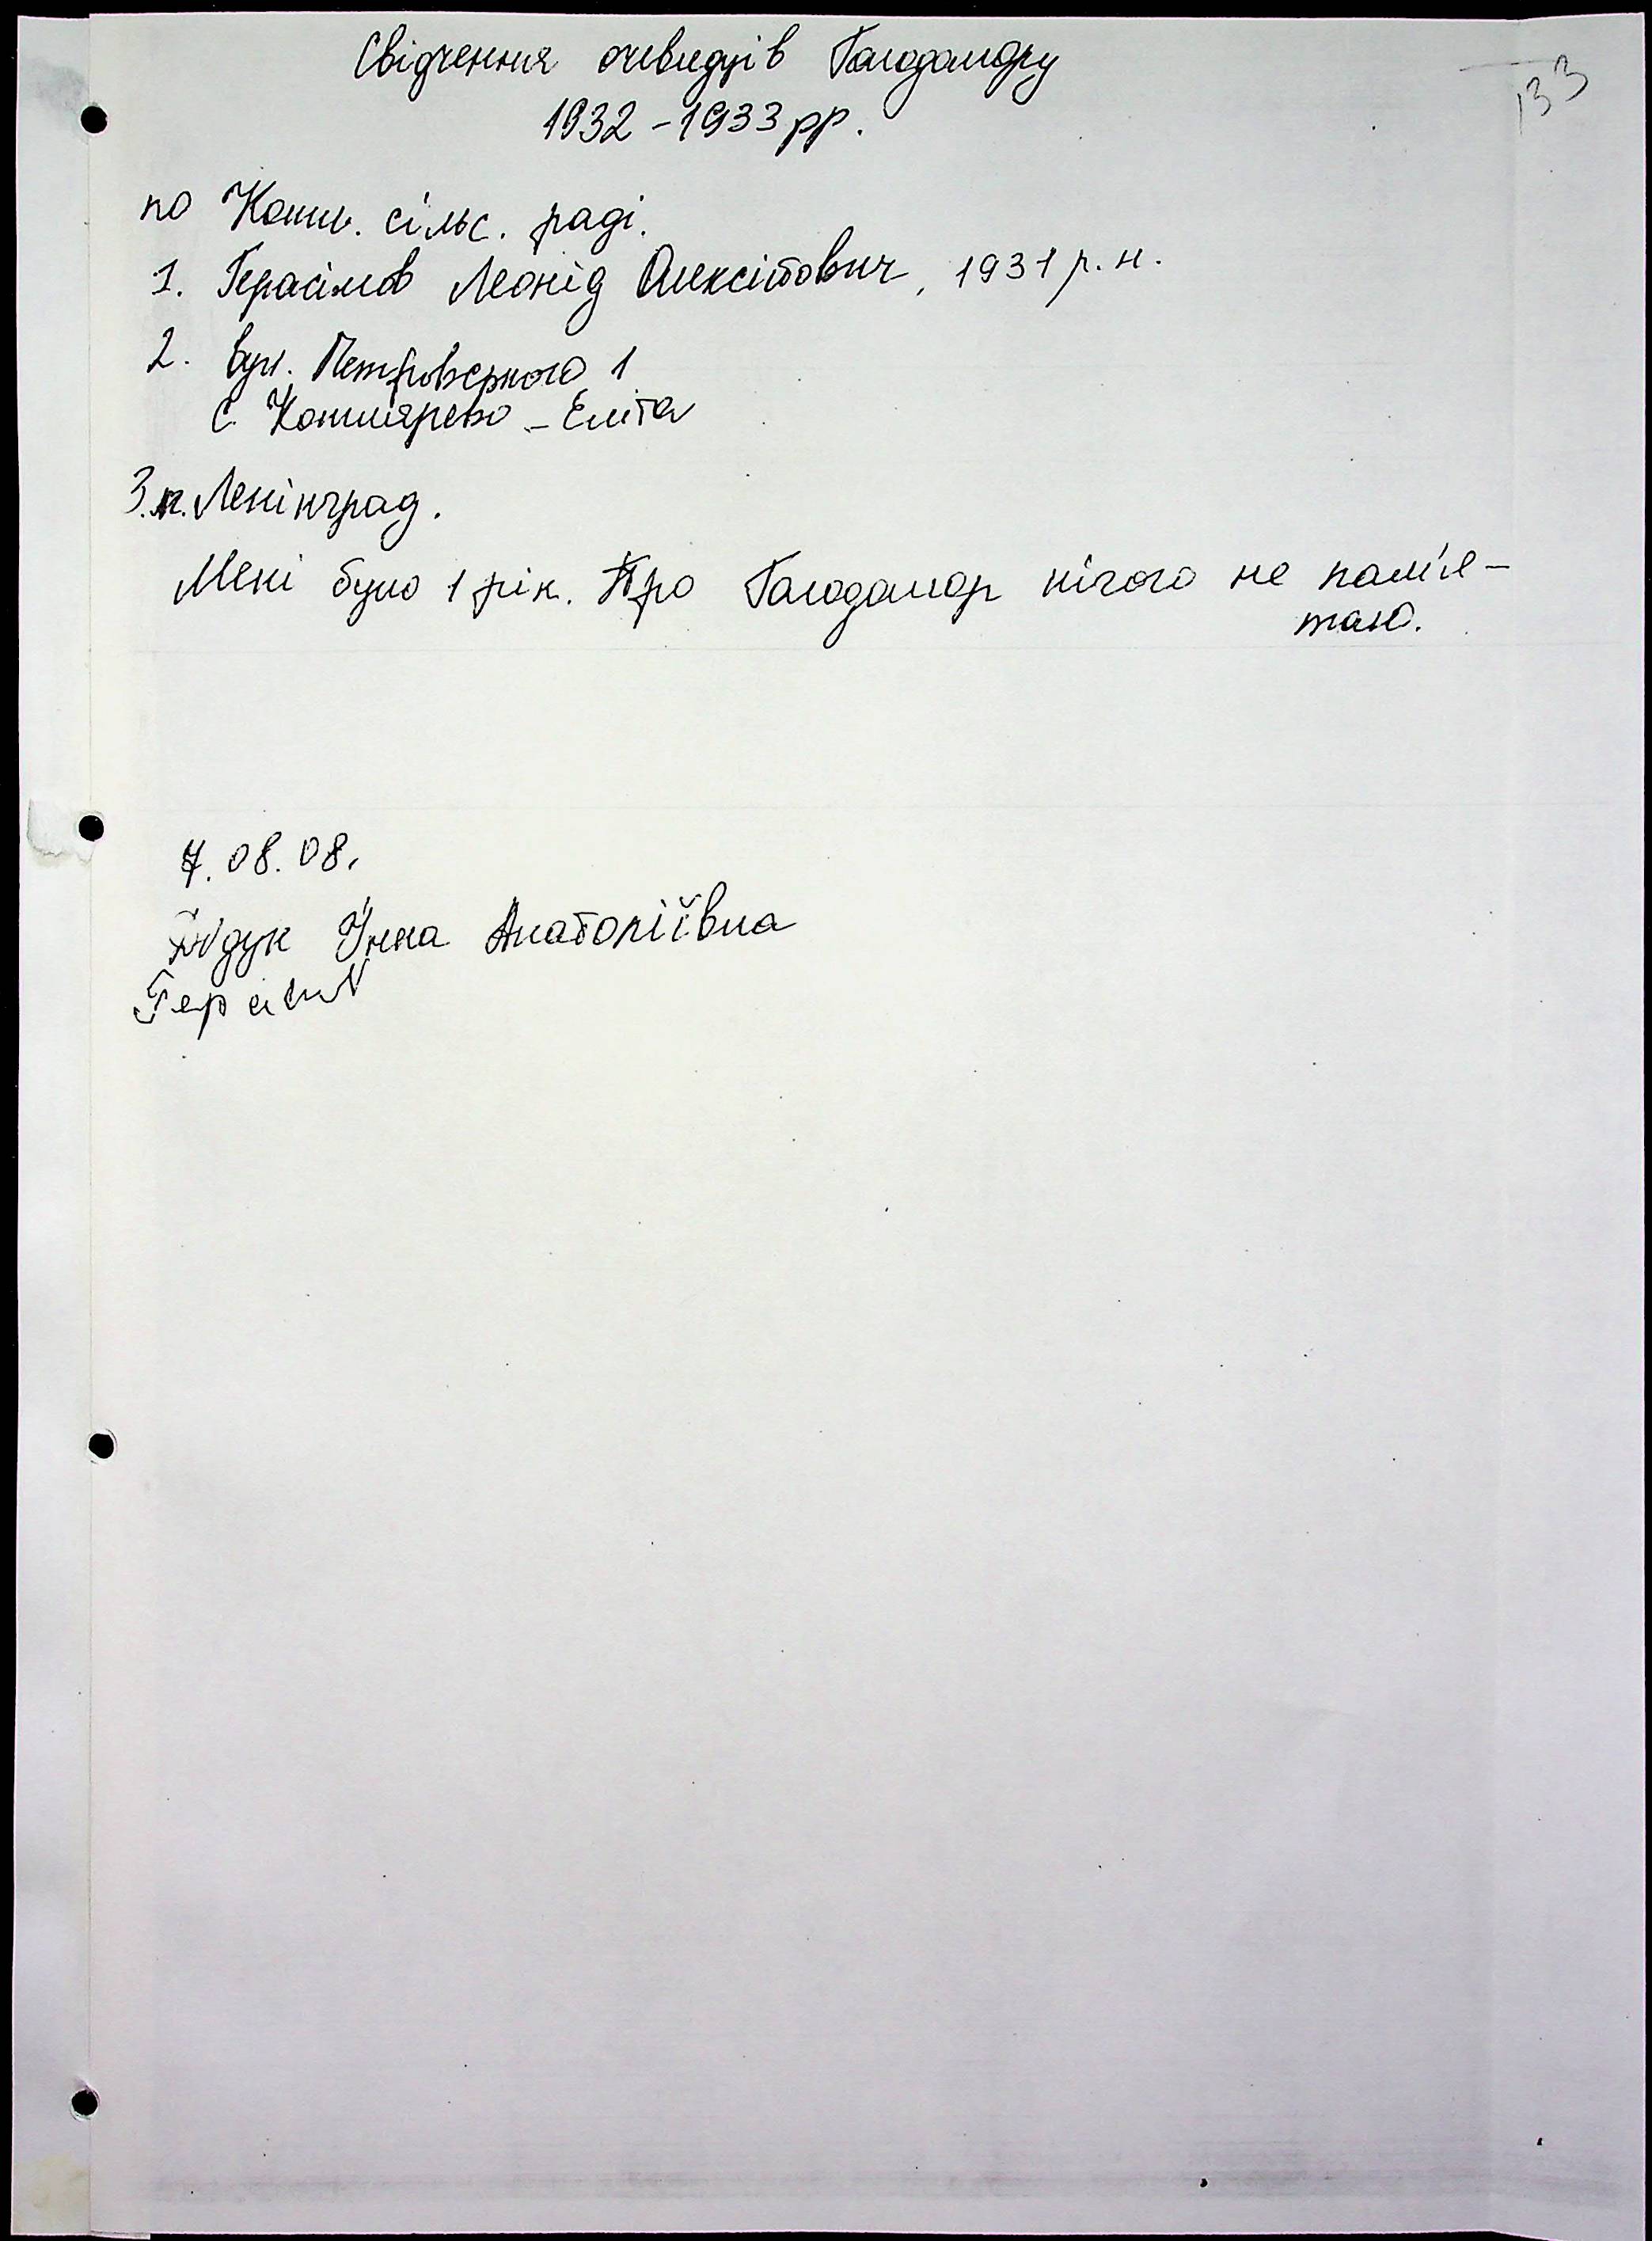 133
Свідчення очевидців Голодомору
1932-1933 рр.
по Кошл. сільс. раді.
1. Герасімов Леонід Олексійович, 1931 р.н.
2. вул. Петровського 1
с. Кошлярево - Еліта
3. м. Ленінград.
Мені було 1 рік. Про Голодомор нічого не пам'я-
таю.
7.08.08.
Дідук Інна Анатоліївна